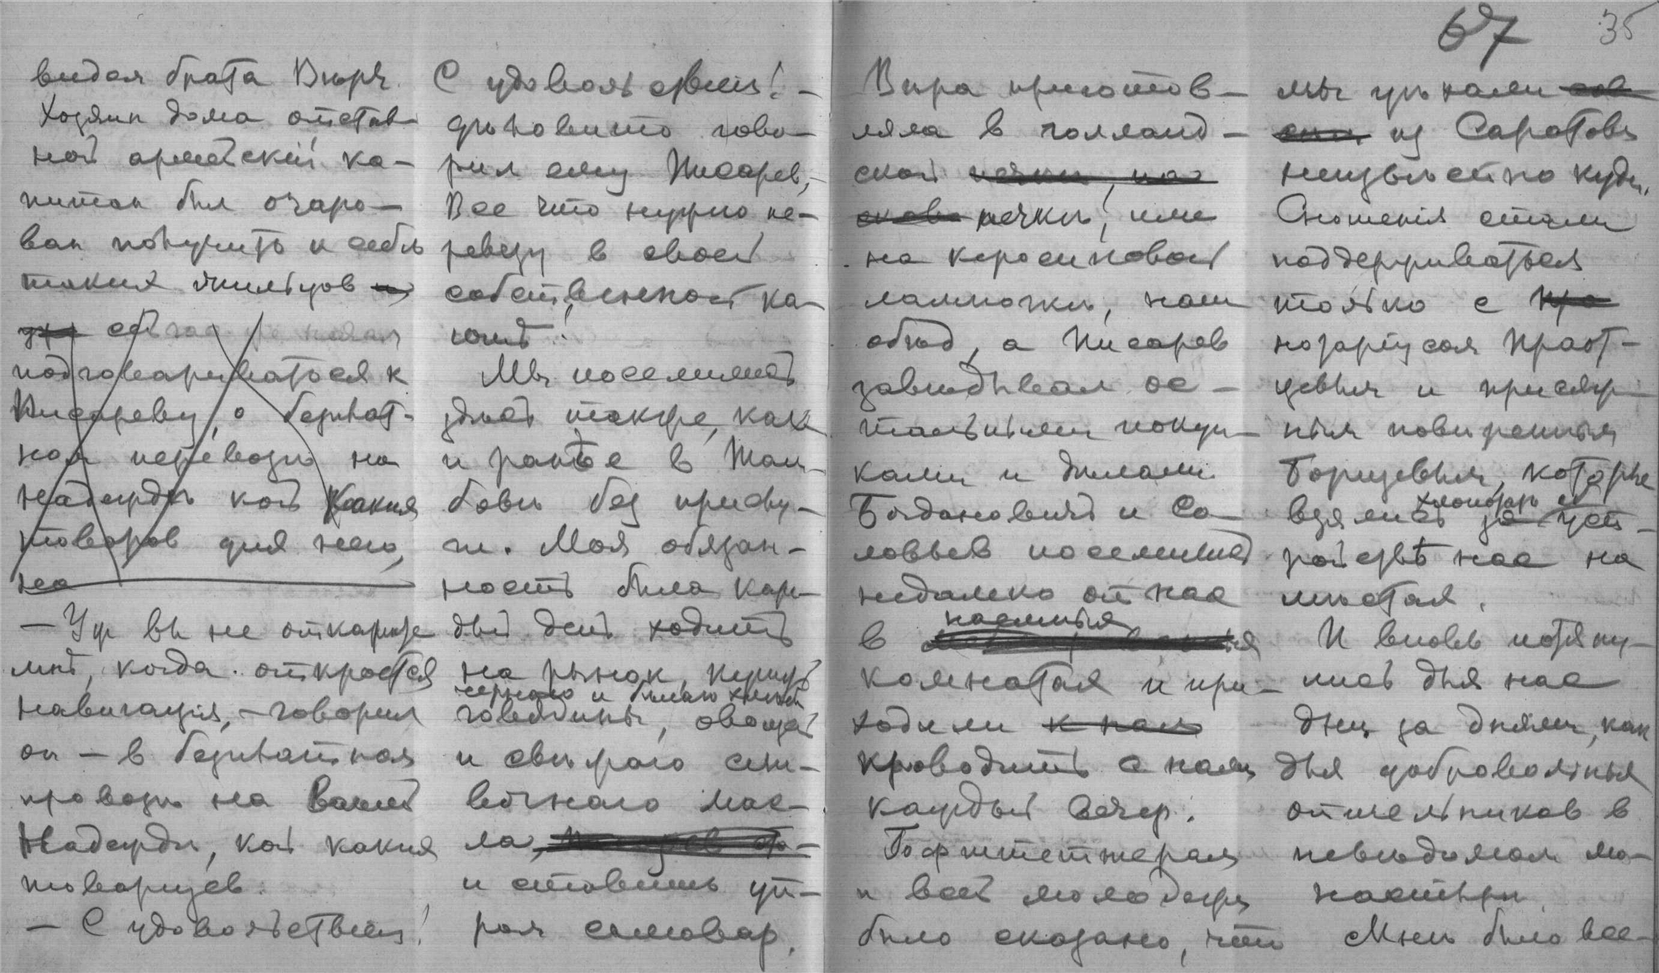 67 35
видел брата Вѣры.
Хозяин дома отстав-
ной армейский ка-
питан был очаро-
ван получить к себѣ
таких жильцов
сейчас же начал
подговариваться к
Писареву, о безплат-
ном перевозѣ на
Надеждѣ кой каких
товаров для него,
на
— Уж вы не откажите
мнѣ, когда откроется
навигація, — говорил
он — в безплатном
провозѣ на вашей
Надеждѣ, кой каких
товарцев.
— С удовольствіем!
С удовольствіем! —
дѣловито гово-
рил ему Писарев, —
Все что нужно пе-
ревезу в своей
собственной ка-
ютѣ!
Мы поселились
здѣсь также, как
и ранѣе в Там-
бовѣ без прислу-
ги. Моя обязан-
ность была каж-
дый день ходить
на рынок, купить
чернаго и бѣлаго хлѣба
говядины, овощей
и свѣжаго сли-
вочнаго мас-
ла,
и ставить ут-
ром самовар.
Вѣра приготов-
ляла в голланд-
ской
печкѣ, или
на керосиновой
лампочкѣ, наш
обѣд, а Писарев
завѣдывал ос-
тальными покуп-
ками и дѣлами.
Богданович и Со-
ловьев поселились
недалеко от нас
в наемных
комнатах и при-
ходили к нам
проводить с нами
каждый вечер.
Гофштеттерам
и всей молодежи
было сказано, что
мы уѣхали
из Саратова
неизвѣстно куда.
Сношенія стали
поддерживаться
только с
нотаріусом Праот-
цевым и присяж-
ным повѣренным
Борщевым, которые
взялись хлопотать об уст-
ройствѣ нас на
мѣстах.
И вновь потяну-
лись для нас
дни за днями, как
для добровольных
отшельников в
невѣдомом мо-
настырѣ.
Мнѣ было все-